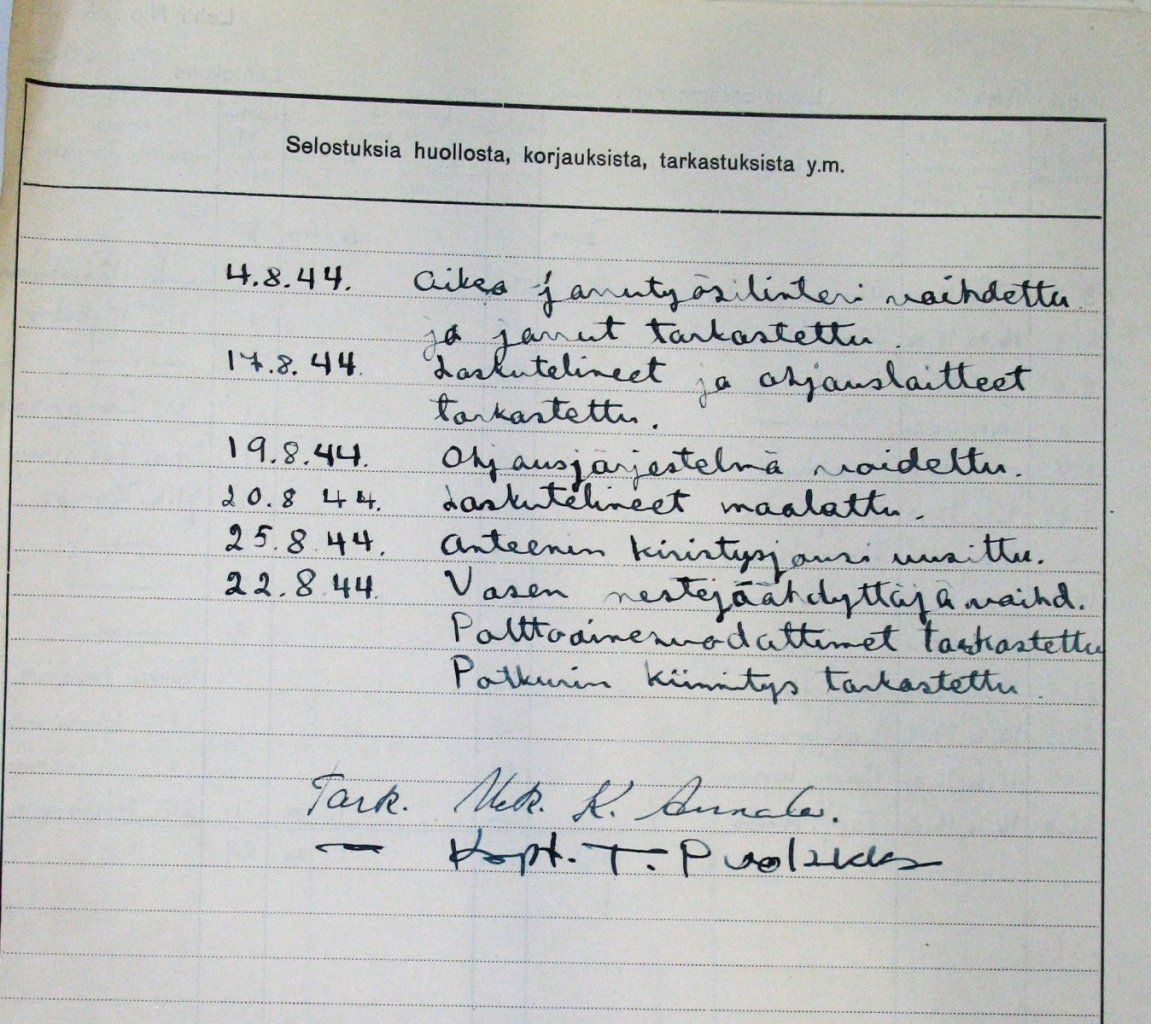 Selostuksia huollosta, korjauksista, tarkastuksista y.m.
4.8.44. Oikea jarrutyösilinteri vaihdettu
ja jarrut tarkastettu.
17.8.44. Laskutelineet ja ohjauslaitteet
tarkastettu.
19.8.44. Ohjausjärjestelmä voideltu.
20.8 44. Laskutelineet maalattu.
25.8.44. Anteenin kiristysjousi uusittu.
22.8.44. Vasen nestejäähdyttäjä vaihd.
Polttoainesuodattimet tarkastettu
Potkurin kiinnitys tarkastettu.
Tark. Mek. K. Annala.
— Kapt. T. Puolakka